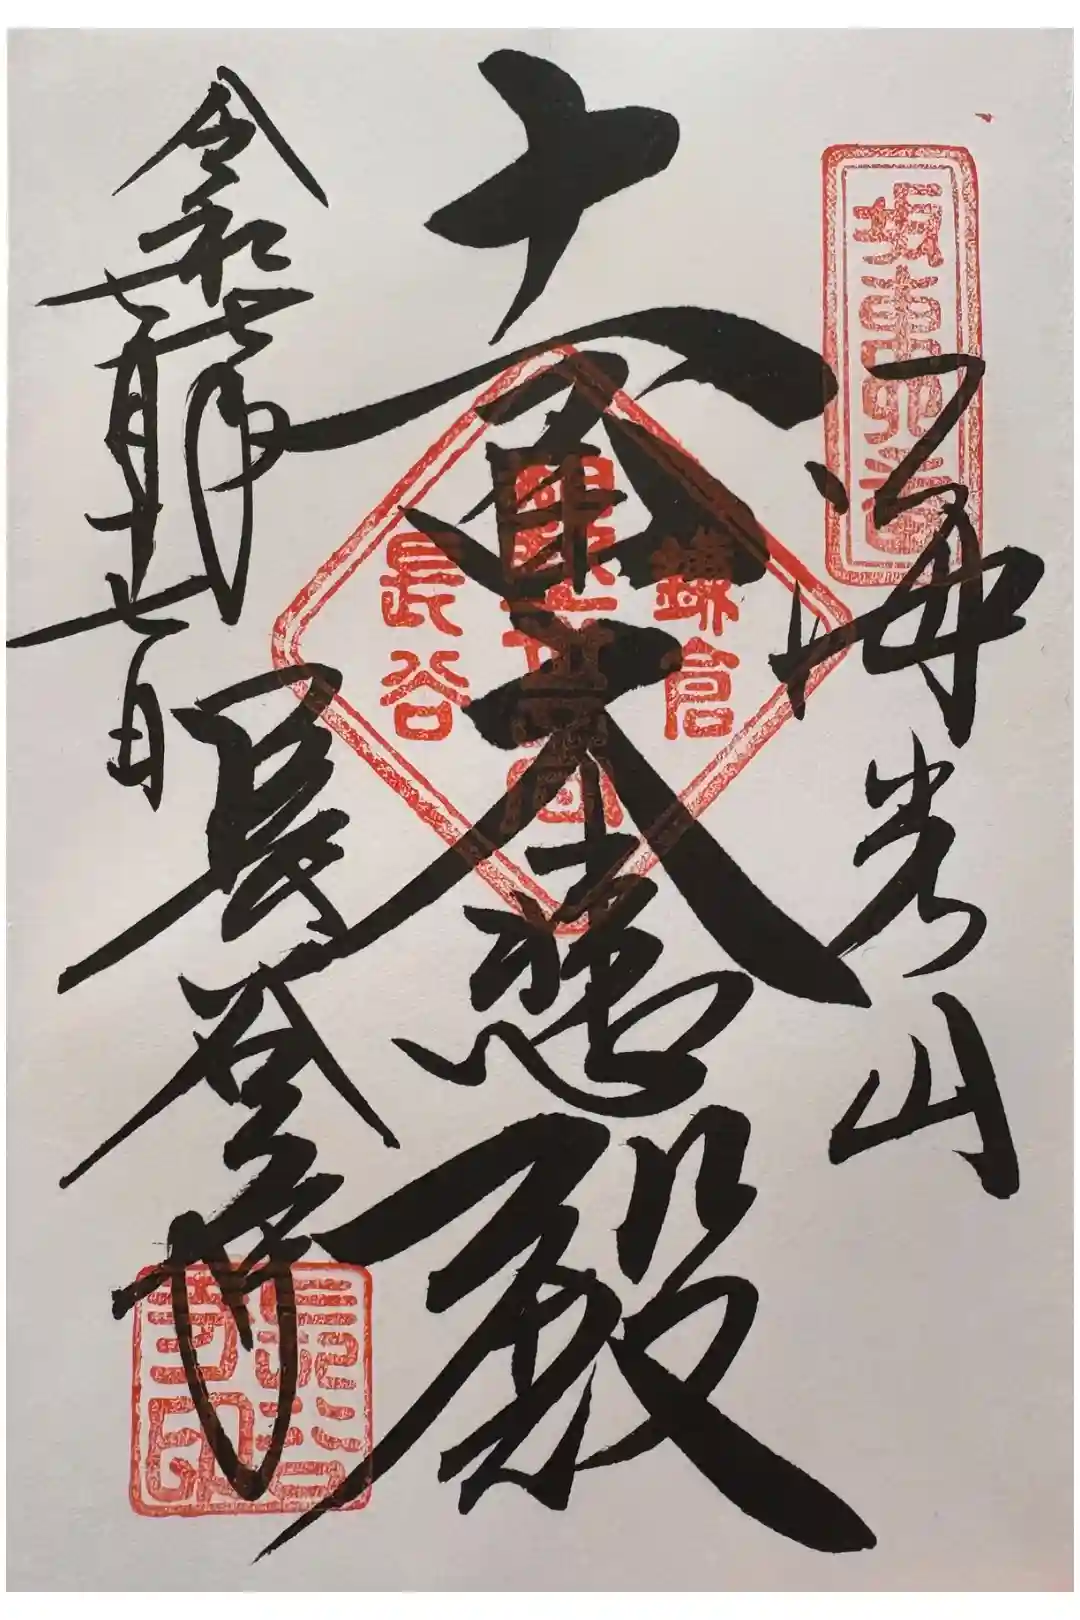 坂東四番
海光山
十一面大悲殿
鎌倉
長谷
令和七年
七月十七日
長谷寺